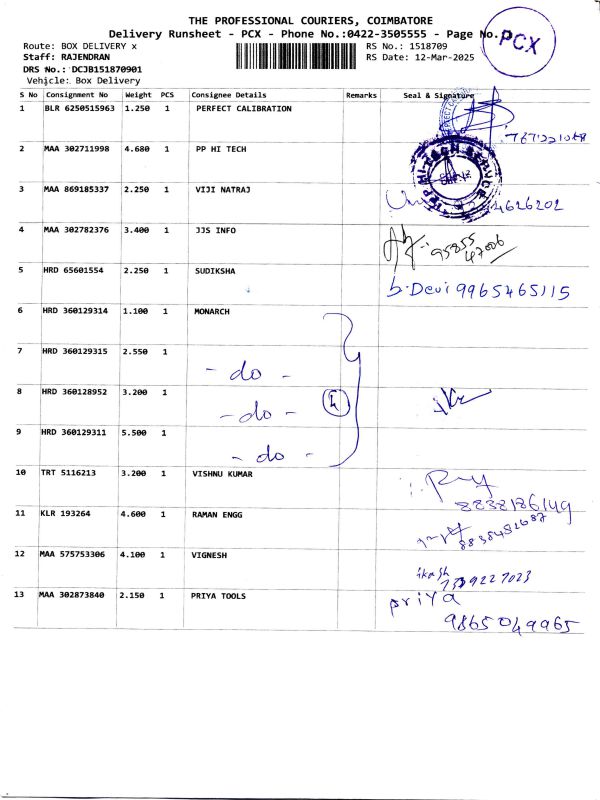 THE PROFESSIONAL COURIERS, COIMBATORE
Delivery Runsheet - PCX - Phone No.:0422-3505555 - Page No.
PCX
Route: BOX DELIVERY x RS No.: 1518709
Staff: RAJENDRAN RS Date: 12-Mar-2025
DRS No.: DCJB151870901
Vehicle: Box Delivery
S No Consignment No Weight PCS Consignee Details Remarks Seal & Signature
1 BLR 6250515963 1.250 1 PERFECT CALIBRATION
2 MAA 302711998 4.680 1 PP HI TECH
3 MAA 869185337 2.250 1 VIJI NATRAJ 4626202
4 MAA 302782376 3.400 1 JJS INFO 95855
47006
5 HRD 65601554 2.250 1 SUDIKSHA b.Devi 9965465115
6 HRD 360129314 1.100 1 MONARCH
7 HRD 360129315 2.550 1 - do -
8 HRD 360128952 3.200 1 - do - 4
9 HRD 360129311 5.500 1 - do -
10 TRT 5116213 3.200 1 VISHNU KUMAR
8838186149
11 KLR 193264 4.600 1 RAMAN ENGG
12 MAA 575753306 4.100 1 VIGNESH
13 MAA 302873840 2.150 1 PRIYA TOOLS priya
9865049965